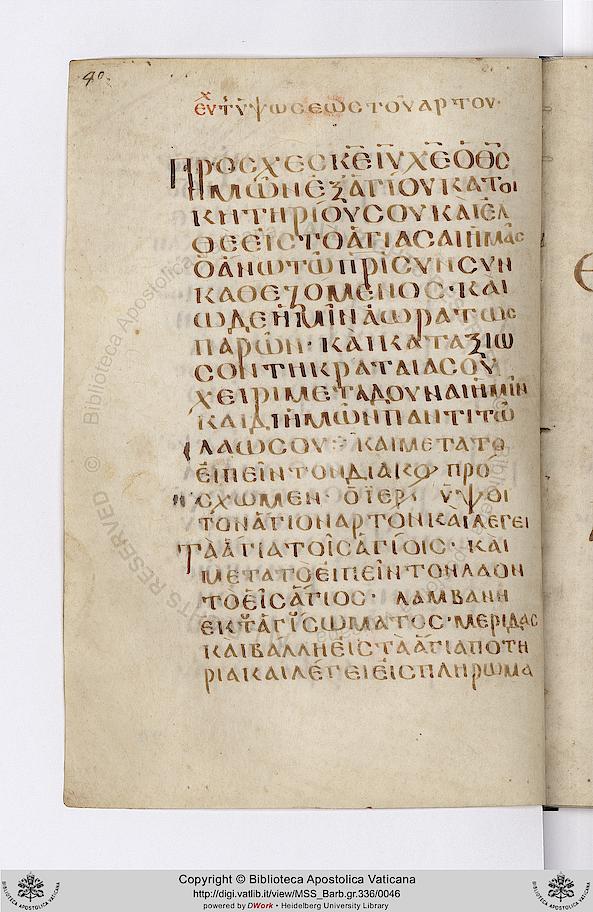 40
ΕΥΧ ΤΥΨΩΣΕΩΣ ΤΟΥ ΑΡΤΟΥ·
ΠΡΟΣΧΕΣ Κ̅Ε̅ Ι̅Υ̅ Χ̅Ε̅ Ο Θ̅Σ̅
ΗΜΩΝ ΕΞ ΑΓΙΟΥ ΚΑΤΟΙ
ΚΗΤΗΡΙΟΥ ΣΟΥ ΚΑΙ ΕΛ
ΘΕ ΕΙΣ ΤΟ ΑΓΙΑΣΑΙ ΗΜΑΣ
Ο ΑΝΩ ΤΩ Π̅Ρ̅Ι̅ ΣΥΝ ΣΥΝ
ΚΑΘΕΖΟΜΕΝΟΣ· ΚΑΙ
ΩΔΕ ΗΜΙΝ ΑΩΡΑΤΩΣ
ΠΑΡΩΝ· ΚΑΙ ΚΑΤΑΞΙΩ
ΣΟΝ ΤΗ ΚΡΑΤΑΙΑ ΣΟΥ
ΧΕΙΡΙ ΜΕΤΑΔΟΥΝΑΙ ΗΜΙΝ
ΚΑΙ ΔΙ ΗΜΩΝ ΠΑΝΤΙ ΤΩ
ΛΑΩ ΣΟΥ ΚΑΙ ΜΕΤΑ ΤΟ
ΕΙΠΕΙΝ ΤΟΝ ΔΙΑΚΟ ΠΡΟ
ΣΧΩΜΕΝ· Ο ΙΕΡ ΥΨΟΙ
ΤΟΝ ΑΓΙΟΝ ΑΡΤΟΝ ΚΑΙ ΛΕΓΕΙ
ΤΑ ΑΓΙΑ ΤΟΙΣ ΑΓΙΟΙΣ· ΚΑΙ
ΜΕΤΑ ΤΟ ΕΙΠΕΙΝ ΤΟΝ ΛΑΟΝ
ΤΟ ΕΙΣ ΑΓΙΟΣ· ΛΑΜΒΑΝΗ
ΕΚ ΤΟΥ ΑΓΙΟΥ ΣΩΜΑΤΟΣ· ΜΕΡΙΔΑΣ
ΚΑΙ ΒΑΛΛΗ ΕΙΣ ΤΑ ΑΓΙΑ ΠΟΤΗ
ΡΙΑ ΚΑΙ ΛΕΓΕΙ ΕΙΣ ΠΛΗΡΩΜΑ
Copyright © Biblioteca Apostolica Vaticana
http://digi.vatlib.it/view/MSS_Barb.gr.336/0046
powered by DWork • Heidelberg University Library